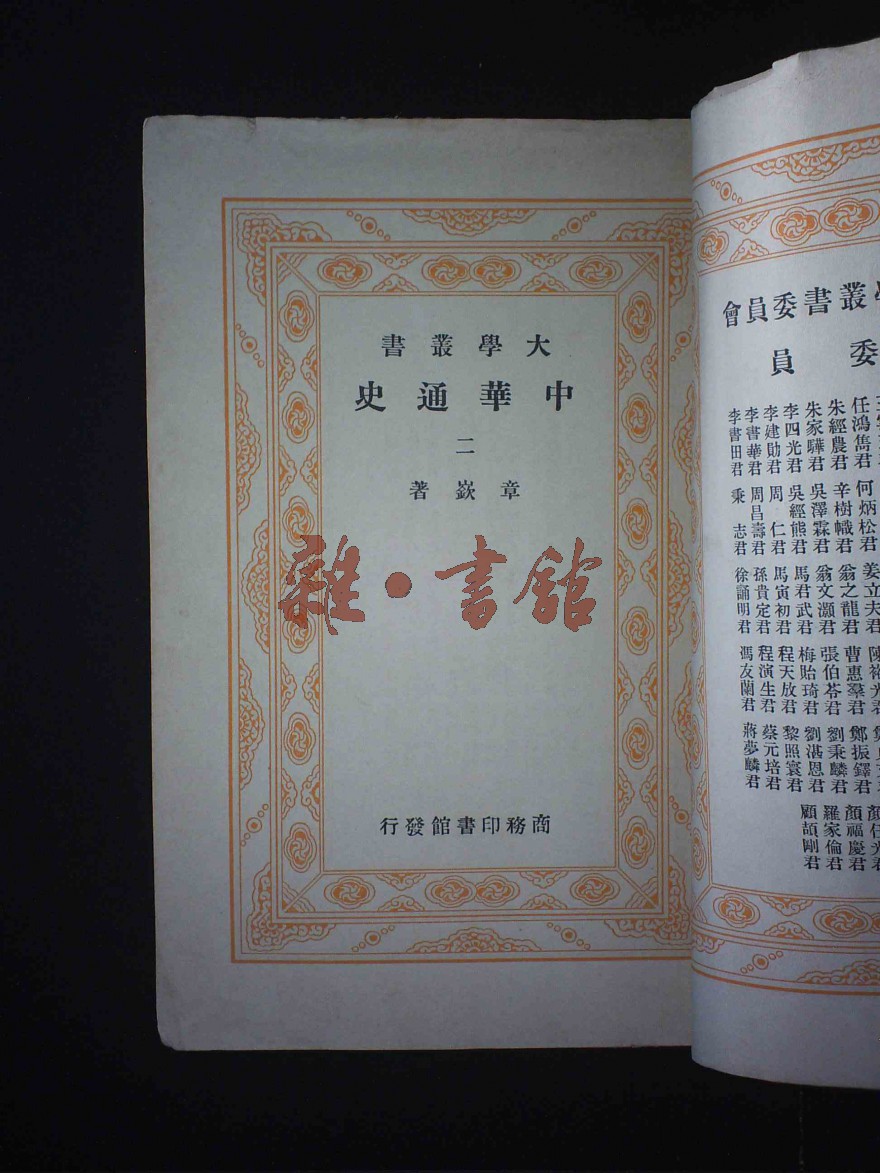 大學叢書
中華通史
二
章嶔著
雜·書館
商務印書館發行
叢書委員會
委員
任鴻雋君
朱經農君
朱家驊君
李四光君
李建勛君
李書華君
李書田君
何炳松君
辛樹幟君
吳澤霖君
吳經熊君
周仁君
周昌壽君
秉志君
姜立夫君
翁之龍君
翁文灝君
馬君武君
馬寅初君
孫貴定君
徐誦明君
陳裕光君
曹惠羣君
張伯苓君
梅貽琦君
程天放君
程演生君
馮友蘭君
鄭振鐸君
劉秉麟君
劉湛恩君
黎照寰君
蔡元培君
蔣夢麟君
顏任光君
顏福慶君
羅家倫君
顧頡剛君